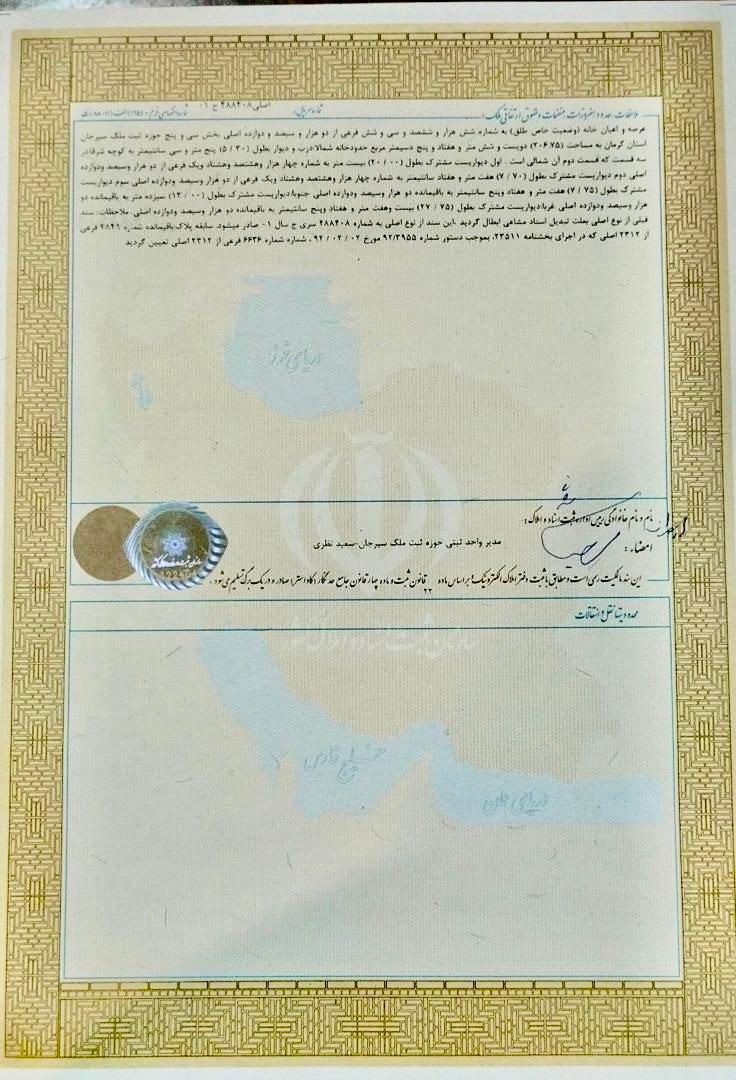 ملاحظات، حدود و مفروزات، منضمات و حقوق ارتفاقی ملک: شماره سریال: اصلی ۴۸۸۴۰۸ ج ۰۱
عرصه و اعیان خانه (وضعیت خاص طلق) به شماره شش هزار و ششصد و سی و شش فرعی از دو هزار و سیصد و دوازده اصلی بخش سی و پنج حوزه ثبت ملک سیرجان
استان کرمان به مساحت (۲۰۶.۷۵) دویست و شش متر و هفتاد و پنج دسیمتر مربع حدودخانه شمالا:درب و دیوار بطول (۵/۳۰) پنج متر و سی سانتیمتر به کوچه شرقا:در
سه قسمت که قسمت دوم آن شمالی است . اول دیواریست مشترک بطول (۲۰/۰۰) بیست متر به شماره چهار هزار وهشتصد وهشتاد ویک فرعی از دو هزار وسیصد ودوازده
اصلی دوم دیواریست مشترک بطول (۷/۷۰) هفت متر و هفتاد سانتیمتر به شماره چهار هزار وهشتصد وهشتاد ویک فرعی از دو هزار وسیصد ودوازده اصلی سوم دیواریست
مشترک بطول (۷/۷۵) هفت متر و هفتاد وپنج سانتیمتر به باقیمانده دو هزار وسیصد ودوازده اصلی جنوبا:دیواریست مشترک بطول (۱۳/۰۰) سیزده متر به باقیمانده دو
هزار وسیصد ودوازده اصلی غربا:دیواریست مشترک بطول (۲۷/۷۵) بیست وهفت متر و هفتاد وپنج سانتیمتر به باقیمانده دو هزار وسیصد ودوازده اصلی. ملاحظات: سند
قبلی از نوع اصلی بعلت تبدیل اسناد مشاعی ابطال گردید .این سند از نوع اصلی به شماره ۴۸۸۴۰۸ سری ج سال ۰۱ صادر میشود. سابقه پلاک:باقیمانده شماره ۲۸۴۹ فرعی
از ۲۳۱۲ اصلی که در اجرای بخشنامه ۲۳۵۱۱، بموجب دستور شماره ۹۲/۳۹۵۵ مورخ ۹۲/۰۲/۰۲ ، شماره شماره ۶۶۳۶ فرعی از ۲۳۱۲ اصلی تعیین گردید
دریای خزر
نام و نام خانوادگی رییس اداره ثبت اسناد و املاک:
امضاء : مدیر واحد ثبتی حوزه ثبت ملک سیرجان-سعید نظری
این سند مالکیت رسمی است و مطابق با ثبت دفتر املاک الکترونیک براساس ماده ۲۲ قانون ثبت و ماده چهار قانون جامع حدنگار (کاداستر) صادر و در یک برگ تسلیم می شود .
محدودیتها نقل و انتقالات
سازمان ثبت اسناد و املاک کشور
خلیج فارس
دریای عمان